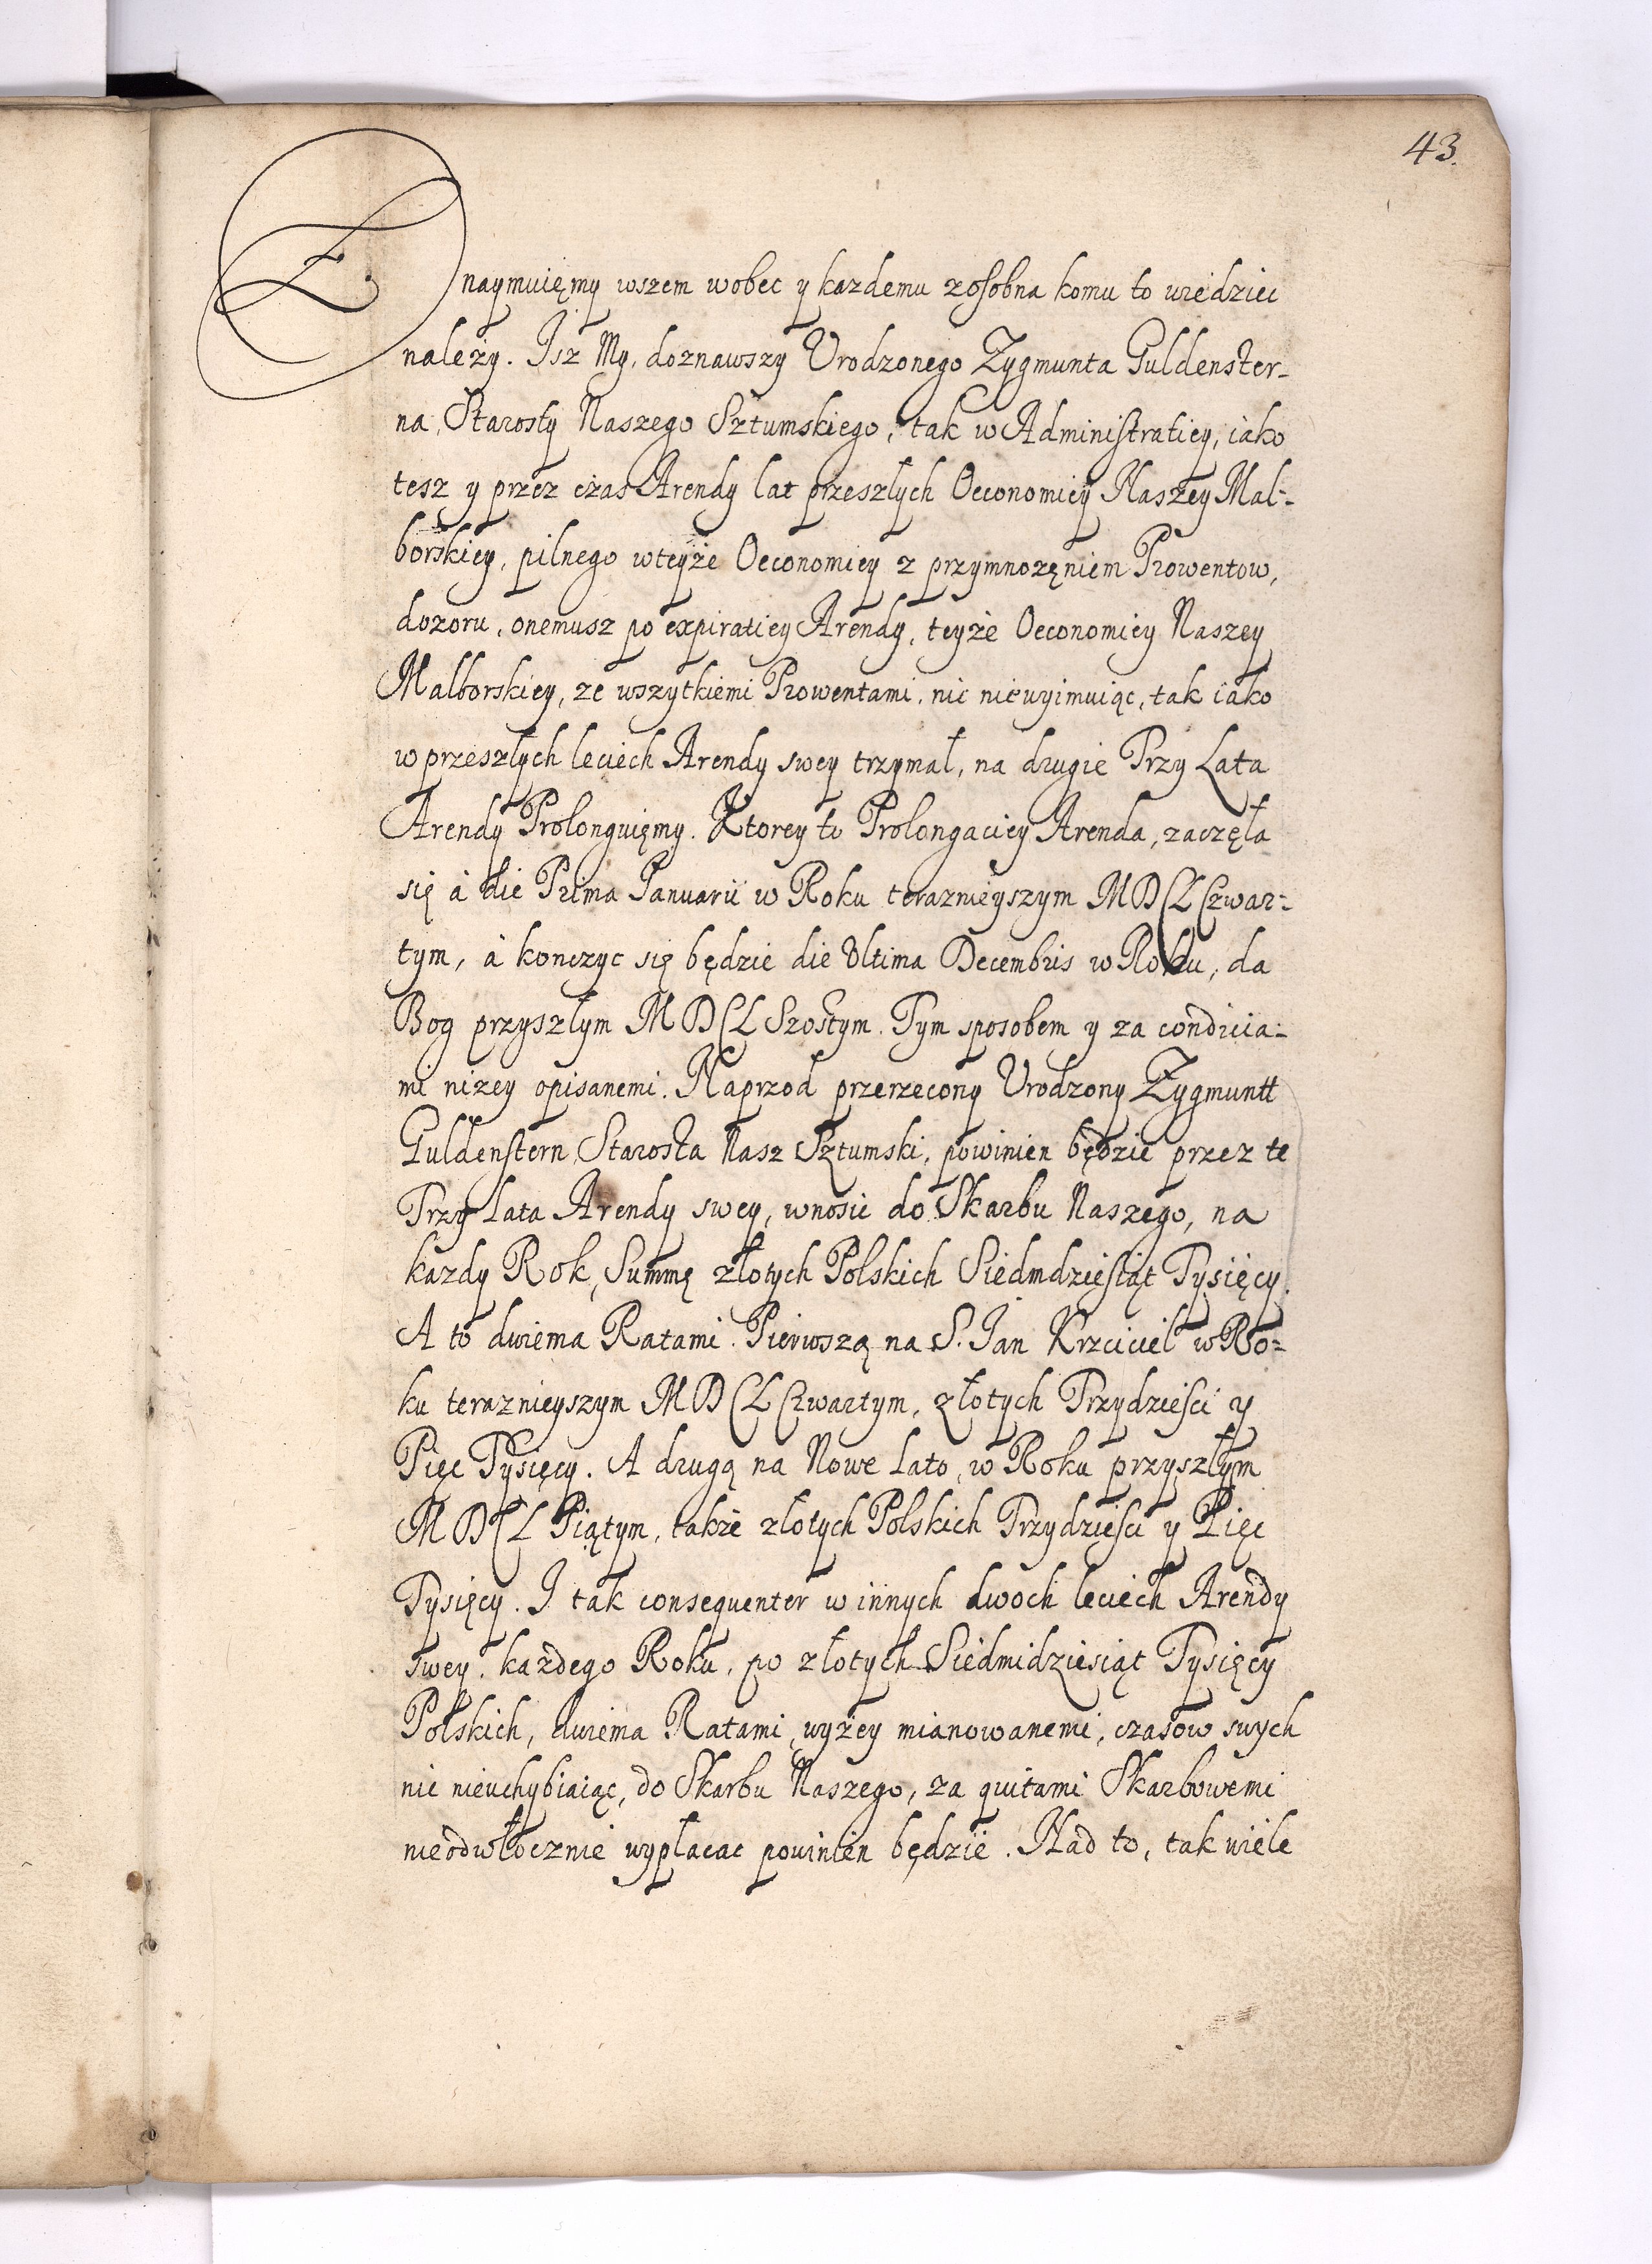 43.
Znaymuięmy wszem wobec y kazdemu zosobna komu to wiedziec
należy. Isz My, doznawszy Vrodzonego Zygmunta Guldenster-
na, Starosty Naszego Sztumskiego, tak w Administratiey, iako
tesz y przez czas Arendy lat przeszlych Oeconomiey Naszey Mal-
borskiey, pilnego wteyże Oeconomiey z przymnozęniem Prowentow,
dozoru, onemusz po expiratiey Arendy, teyże Oeconomiey Naszey
Malborskiey, ze wszytkiemi Prowentami, nic niewyimuiąc, tak iako
w przeszłych leciech Arendy swey trzymał, na drugie Trzy Lata
Arendy Prolonguięmy. Ktorey to Prolongaciey Arenda, zaczęła
się à die Prima Januarii w Roku teraznieyszym MDCL Czwar-
tym, à konczyc się będzie die Vltima Decembris w Roku, da
Bog przyszłym MDCL Szostym. Tym sposobem y za condicia-
mi nizey opisanemi. Naprzod przerzecony Vrodzony Zygmuntt
Guldenstern, Starosta Nasz Sztumski, powinien będzie przez te
Trzy Lata Arendy swey, wnosic do Skarbu Naszego, na
kazdy Rok, Summę złotych Polskich Siedmdziesiąt Tysięcy.
A to dwiema Ratami. Pierwszą na S. Jan Krzciciel w Ro-
ku teraznieyszym MDCL Czwartym, złotych Trzydziesci y
Pięc Tysięcy. A drugą na Nowe Lato, w Roku przyszłym
MDCL Piątym, także złotych Polskich Trzydziesci y Pięc
Tysięcy. I tak consequenter w innych dwoch leciech Arendy
swey, każdego Roku, po złotych Siedmidziesiąt Tysięcy
Polskich, dwiema Ratami, wyżey mianowanemi, czasow swych
nic nieuchybiaiąc, do Skarbu Naszego, za quitami Skarbowemi
nieodwłocznie wypłacac powinien będzie. Nad to, tak wiele